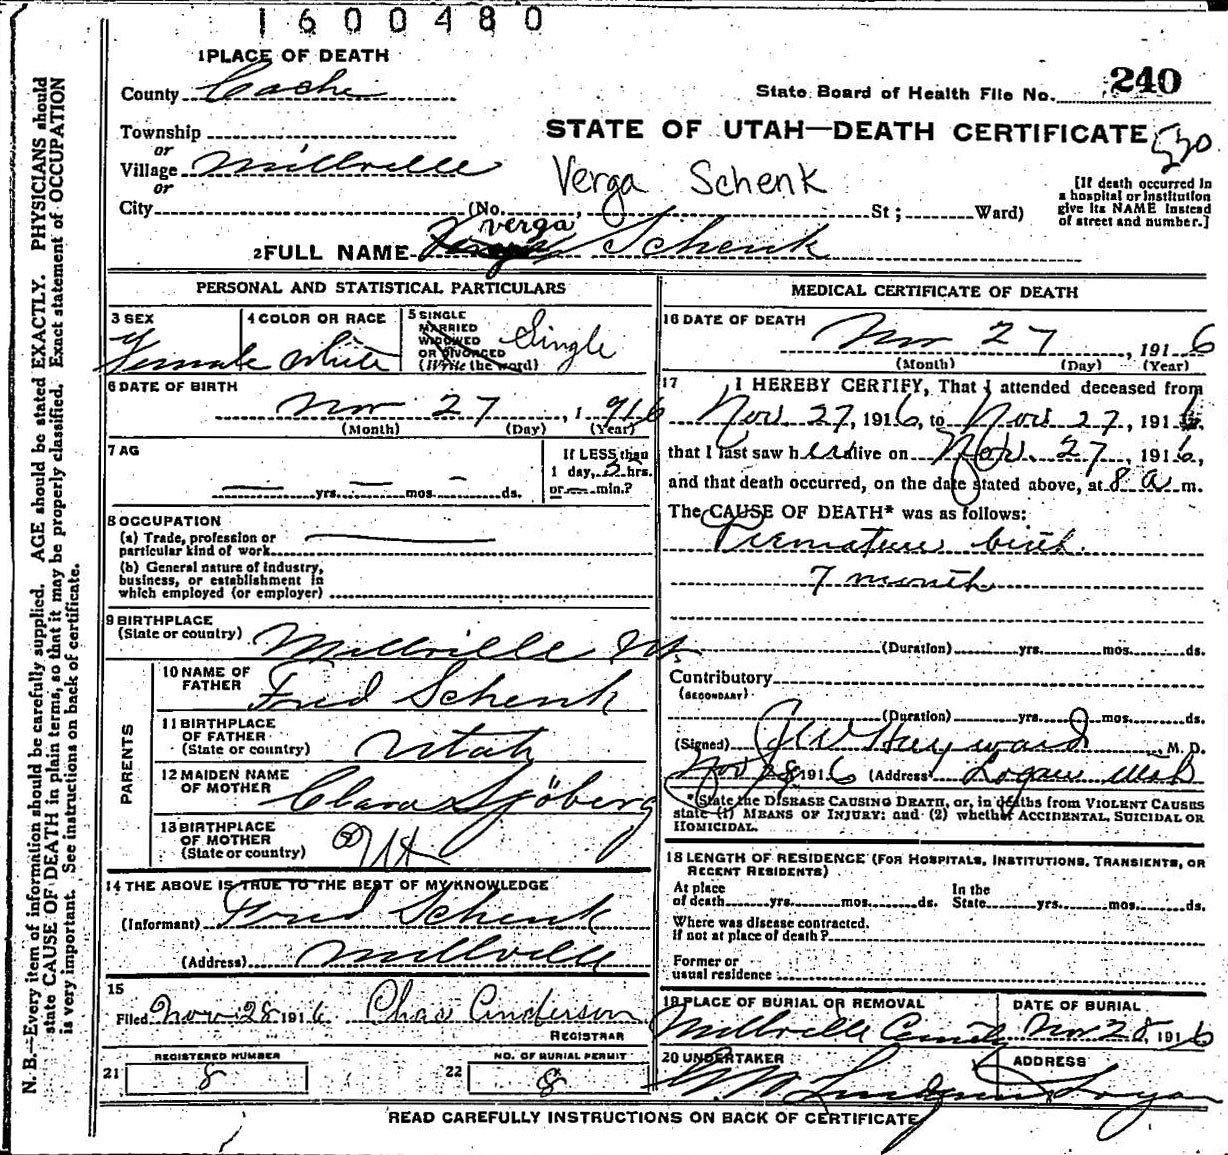 1600480
1 PLACE OF DEATH
County Cache
State Board of Health File No. 240
Township
or
STATE OF UTAH—DEATH CERTIFICATE
Village Millville
or
Verga Schenk
[If death occurred in a hospital or institution give its NAME instead of street and number.]
City (No. St; Ward)
Verga
2 FULL NAME Schenk
PERSONAL AND STATISTICAL PARTICULARS
3 SEX
Female
4 COLOR OR RACE
White
5 SINGLE
MARRIED
WIDOWED
OR DIVORCED
(Write the word)
Single
6 DATE OF BIRTH
Nov 27, 1916
(Month) (Day) (Year)
7 AG
yrs. mos. ds.
If LESS than
1 day, 2 hrs.
or min.?
8 OCCUPATION
(a) Trade, profession or
particular kind of work
(b) General nature of industry,
business, or establishment in
which employed (or employer)
9 BIRTHPLACE
(State or country) Millville Ut
PARENTS
10 NAME OF
FATHER Fred Schenk
11 BIRTHPLACE
OF FATHER
(State or country) Utah
12 MAIDEN NAME
OF MOTHER Clara Sjöberg
13 BIRTHPLACE
OF MOTHER
(State or country)
14 THE ABOVE IS TRUE TO THE BEST OF MY KNOWLEDGE
(Informant) Fred Schenk
(Address) Millville
15
Filed Nov 28 1916 Chas Anderson
REGISTRAR
REGISTERED NUMBER
21 8
NO. OF BURIAL PERMIT
22 8
MEDICAL CERTIFICATE OF DEATH
16 DATE OF DEATH
Nov 27, 1916
(Month) (Day) (Year)
17 I HEREBY CERTIFY, That I attended deceased from
Nov 27, 1916, to Nov 27, 1916
that I last saw her alive on Nov. 27, 1916,
and that death occurred, on the date stated above, at 8 a m.
The CAUSE OF DEATH* was as follows:
Premature birth.
7 month
(Duration) yrs. mos. ds.
Contributory
(SECONDARY)
(Duration) yrs. mos. ds.
(Signed) Hayward, M. D.
Nov 28 1916 (Address) Logan Utah
*State the DISEASE CAUSING DEATH, or, in deaths from VIOLENT CAUSES
state (1) MEANS OF INJURY; and (2) whether ACCIDENTAL, SUICIDAL OR
HOMICIDAL.
18 LENGTH OF RESIDENCE (FOR HOSPITALS, INSTITUTIONS, TRANSIENTS, OR
RECENT RESIDENTS)
At place
of death yrs. mos. ds.
In the
State yrs. mos. ds.
Where was disease contracted.
If not at place of death?
Former or
usual residence
19 PLACE OF BURIAL OR REMOVAL
Millville
DATE OF BURIAL
Nov 28, 1916
20 UNDERTAKER
ADDRESS
Logan
READ CAREFULLY INSTRUCTIONS ON BACK OF CERTIFICATE
N. B.—Every item of information should be carefully supplied. AGE should be stated EXACTLY. PHYSICIANS should
state CAUSE OF DEATH in plain terms, so that it may be properly classified. Exact statement of OCCUPATION
is very important. See instructions on back of certificate.